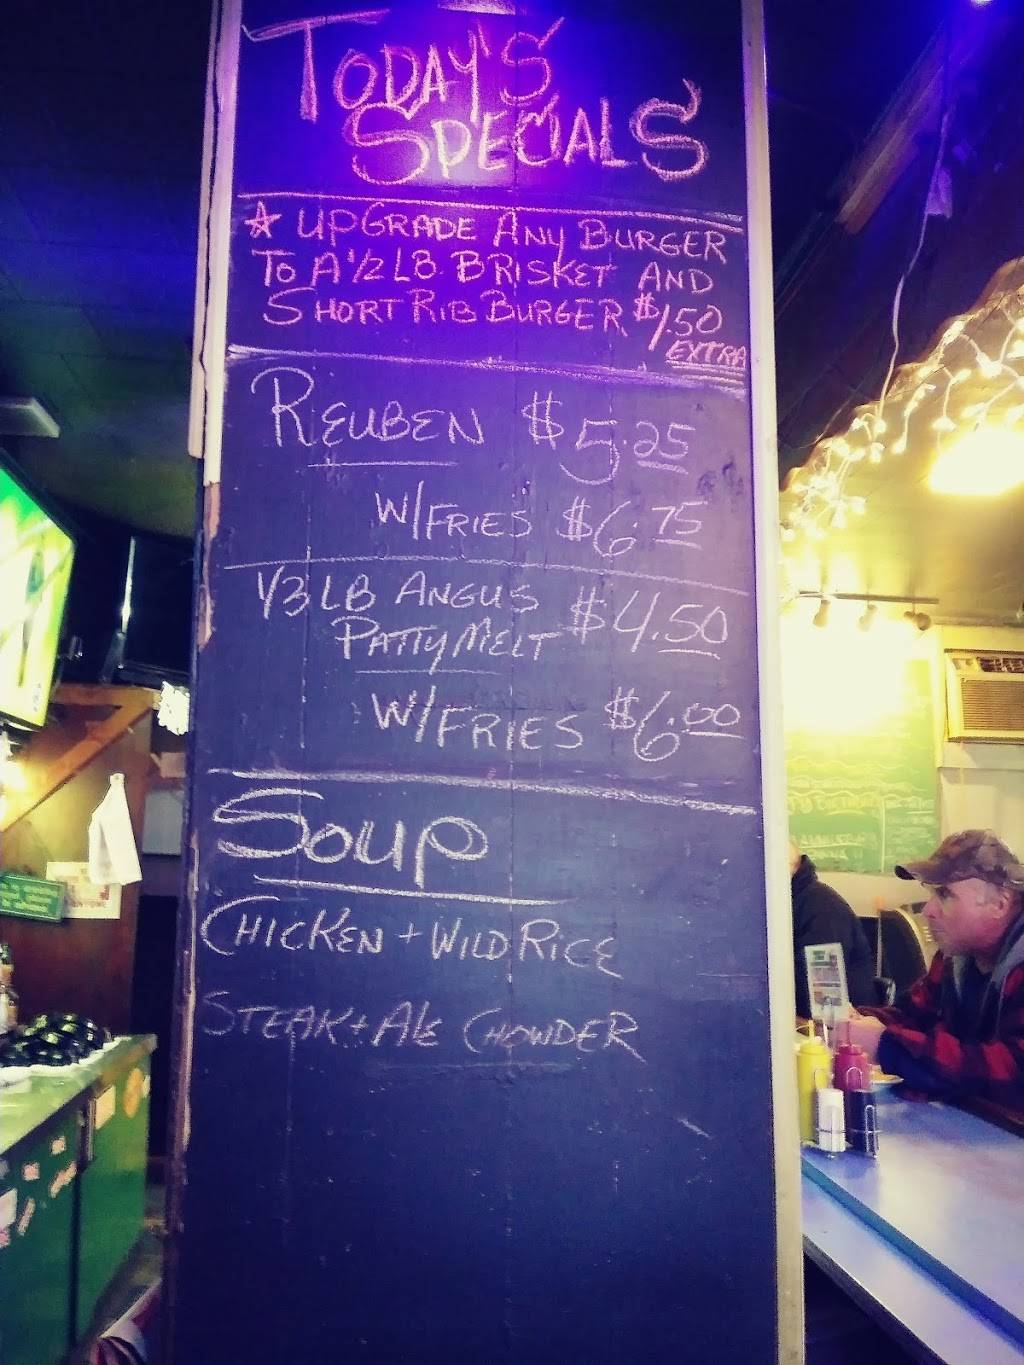 TODAY'S
SPECIALS
☆ UPGRADE ANY BURGER
TO A 1/2 LB BRISKET AND
SHORT RIB BURGER $1.50
EXTRA
REUBEN $5.25
W/FRIES $6.75
1/3 LB ANGUS $4.50
PATTY MELT
W/FRIES $6.00
SOUP
CHICKEN + WILD RICE
STEAK + ALE CHOWDER